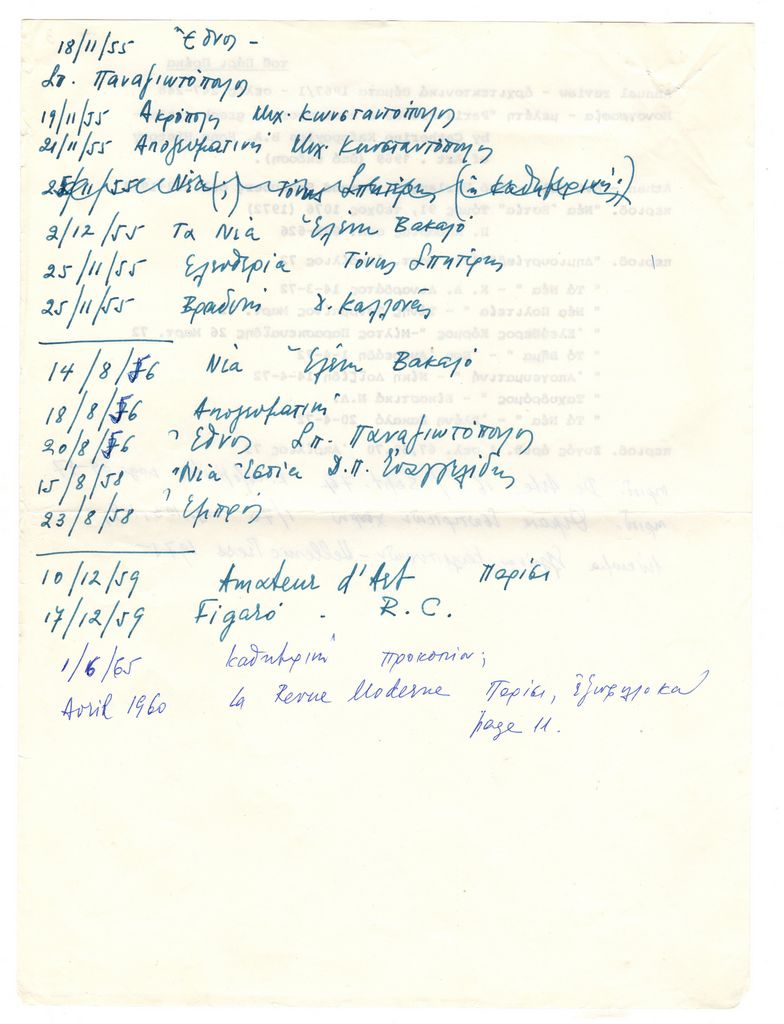 18/11/55 Ἔθνος -
Σπ. Παναγιωτόπουλος
19/11/55 Ακρόπολη Μιχ. Κωνσταντόπουλος
21/11/55 Απογευματινή Μιχ. Κωνσταντόπουλος
25/11/55 Νέα (;) Τόνης Σπητέρης (ἢ Καθημερινή;)
2/12/55 Τα Νέα Ἑλένη Βακαλό
25/11/55 Ελευθερία Τόνης Σπητέρης
25/11/55 Βραδυνή Δ. Καλλονάς
14/8/56 Νέα Ἑλένη Βακαλό
18/8/56 Απογευματινή
20/8/56 Ἔθνος Σπ. Παναγιωτόπουλος
15/8/58 Νέα Ἑστία Δ.Π. Εὐαγγελίδης
23/8/58 Ἐμπρός
10/12/59 Amateur d'Art Παρίσι
17/12/59 Figaró - R.C.
1/6/65 Καθημερινή Προκοπίου;
Avril 1960 La Revue Moderne Παρίσι, ἐξώφυλλο και
page 11.